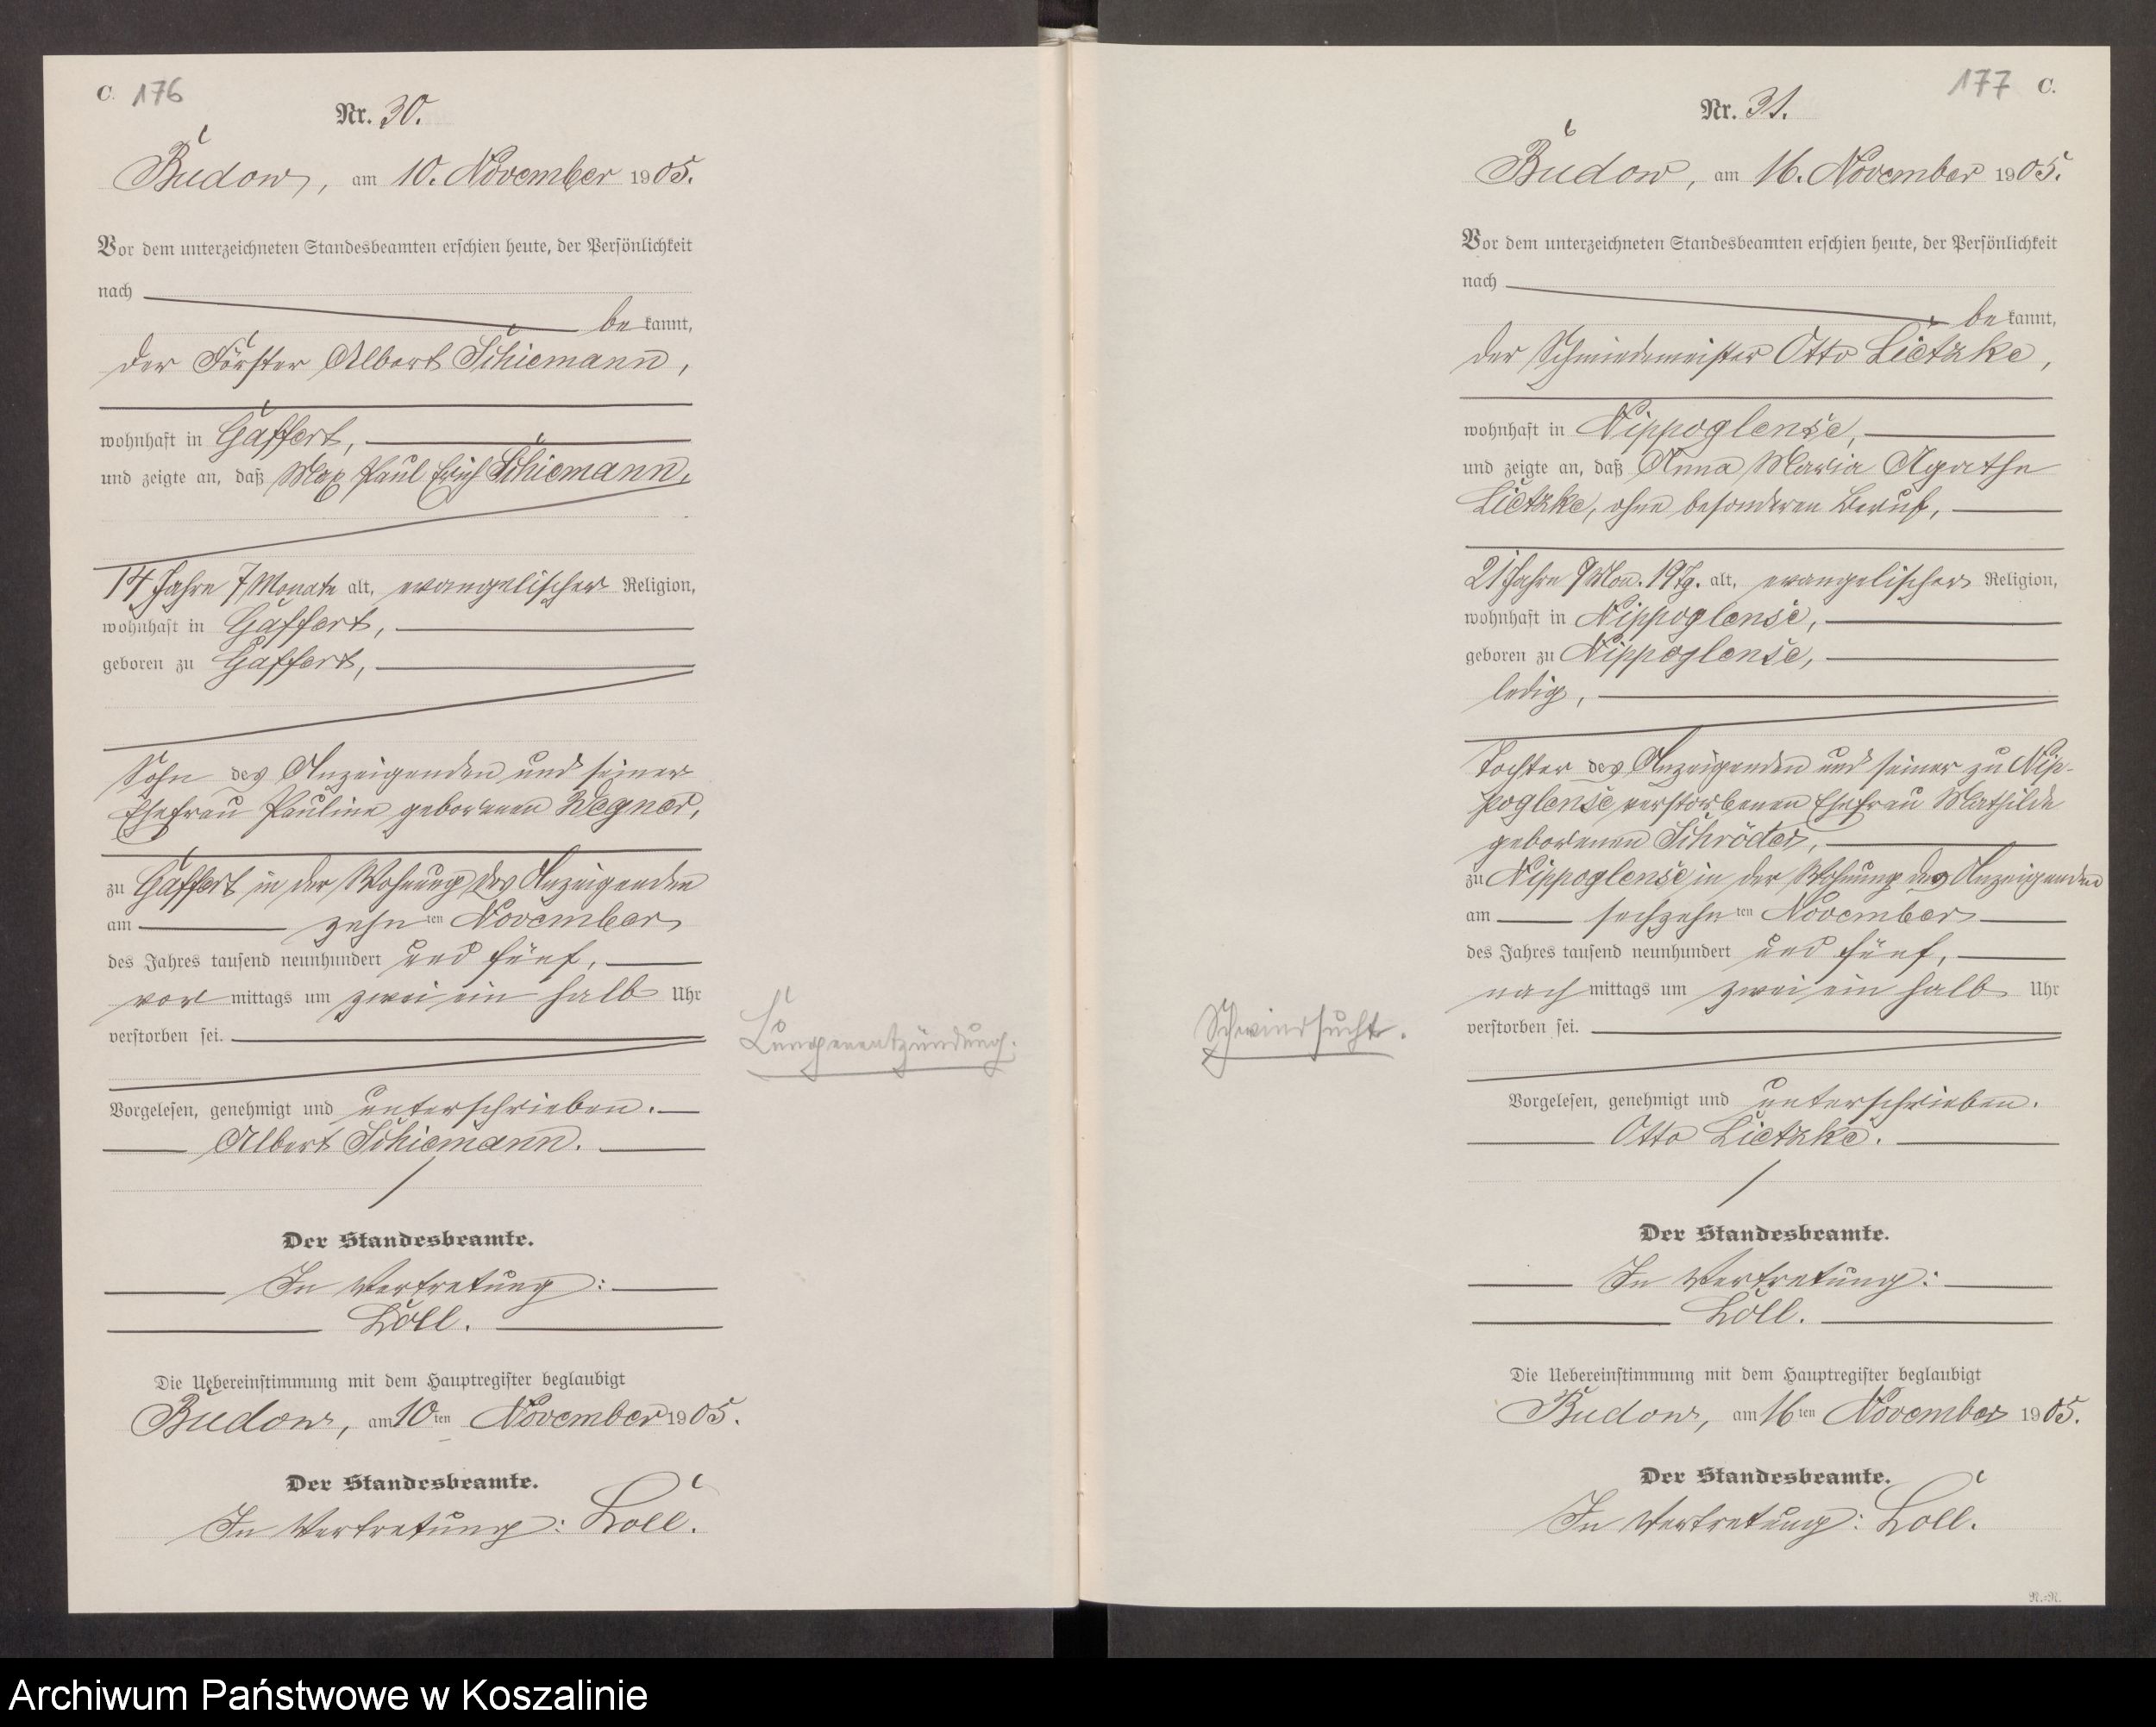 C. 176
Nr. 30.
Budow, am 10. November 1905.
Vor dem unterzeichneten Standesbeamten erschien heute, der Persönlichkeit
nach
be kannt,
der Förster Albert Schiemann,
wohnhaft in Gaffert,
und zeigte an, daß Max Paul Erich Schiemann,
14 Jahre 7 Monate alt, evangelischer Religion,
wohnhaft in Gaffert,
geboren zu Gaffert,
Sohn des Anzeigenden und seiner
Ehefrau Pauline geborenen Wegner,
zu Gaffert in der Wohnung des Anzeigenden
am zehn ten November
des Jahres tausend neunhundert und fünf,
vor mittags um zwei ein halb Uhr
verstorben sei.
Lungenentzündung.
Vorgelesen, genehmigt und unterschrieben.
Albert Schiemann.
Der Standesbeamte.
In Vertretung:
Loll.
Die Uebereinstimmung mit dem Hauptregister beglaubigt
Budow, am 10 ten November 1905.
Der Standesbeamte.
In Vertretung: Loll.
177 C.
Nr. 31.
Budow, am 16. November 1905.
Vor dem unterzeichneten Standesbeamten erschien heute, der Persönlichkeit
nach
be kannt,
der Schmiedemeister Otto Lietzke,
wohnhaft in Nippoglense,
und zeigte an, daß Anna Maria Agathe
Lietzke, ohne besonderen Beruf,
21 Jahre 9 Mon. 19 Tg. alt, evangelischer Religion,
wohnhaft in Nippoglense,
geboren zu Nippoglense,
ledig,
Tochter des Anzeigenden und seiner zu Nip-
poglense verstorbenen Ehefrau Mathilde
geborenen Schröder,
zu Nippoglense in der Wohnung des Anzeigenden
am sechzehn ten November
des Jahres tausend neunhundert und fünf,
nach mittags um zwei ein halb Uhr
verstorben sei.
Schwindsucht.
Vorgelesen, genehmigt und unterschrieben.
Otto Lietzke.
Der Standesbeamte.
In Vertretung:
Loll.
Die Uebereinstimmung mit dem Hauptregister beglaubigt
Budow, am 16 ten November 1905.
Der Standesbeamte.
In Vertretung: Loll.
N.=N.
Archiwum Państwowe w Koszalinie